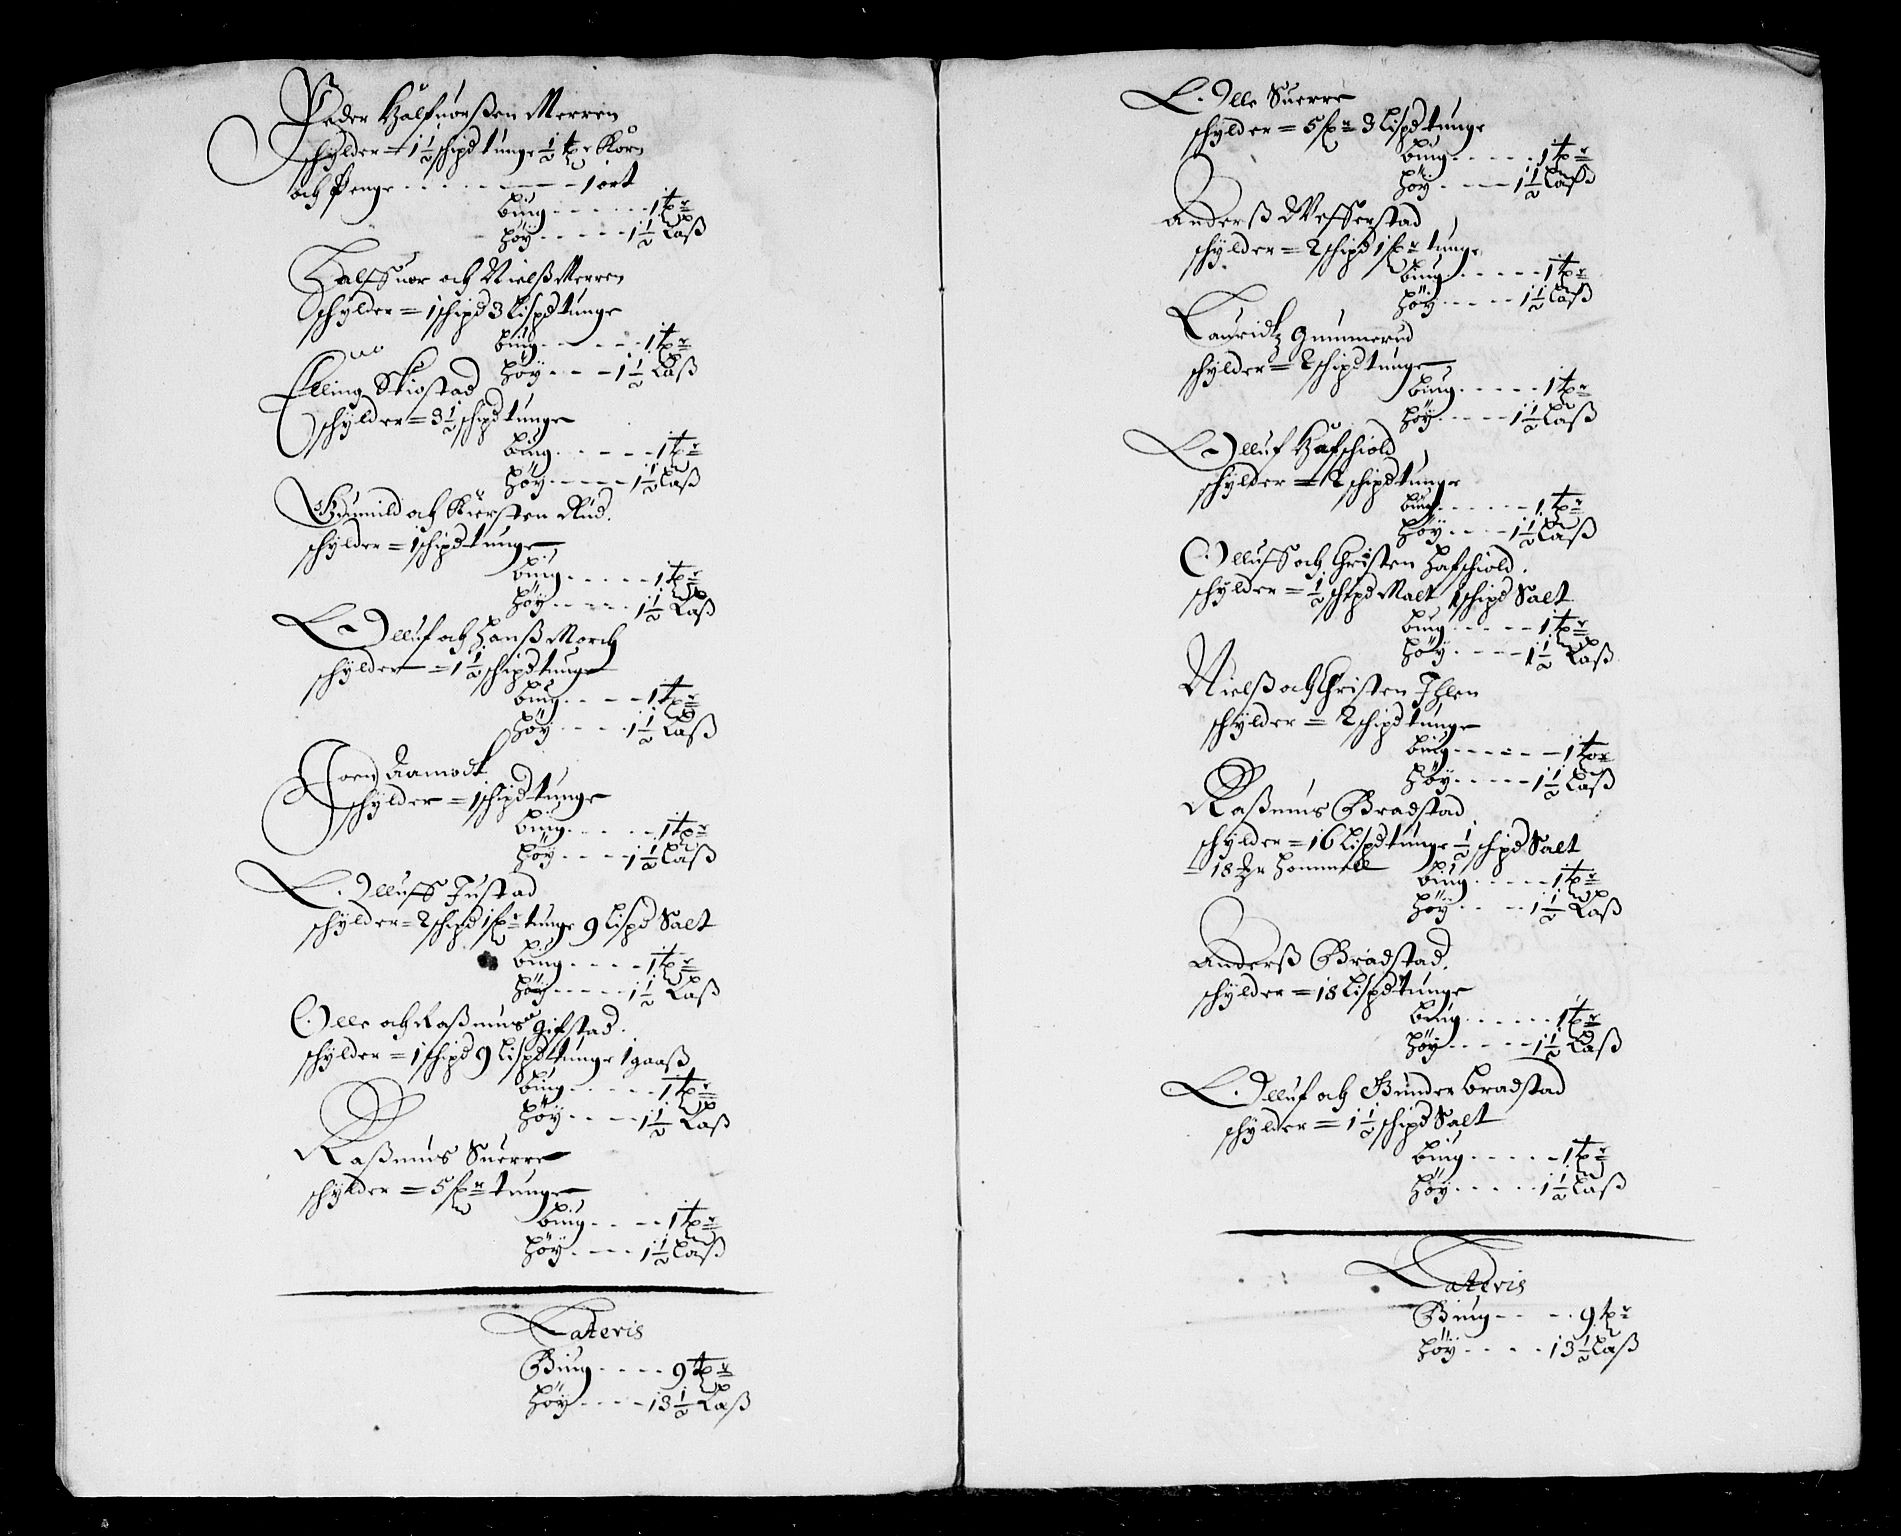 Peder Halfuorßen Merren
schylder = 1½ schipd tunge ½ tr Korn
och Penge - - - - - - - 1 ort
biug - - - - - 1 tr
höÿ - - - - - 1½ Laß
Halffuor och Nielß Merren
schylder = 1 schipd 3 Lispd tunge
biug - - - - - 1 tr
höÿ - - - - 1½ Laß
Elling Skiøstad
schylder = 3½ schipd tunge
biug - - - - - 1 tr
höÿ - - - - - 1½ Laß
Gunnild och Kiersten Rud.
schylder = 1 schipd tunge
biug - - - - - 1 tr
höÿ - - - - - 1½ Laß
Olluf och Hanß Morch
schylder = 1½ schipd tunge
biug - - - - 1 tr
höÿ - - - - 1½ Laß
Joen Aamodt
schylder = 1 schipd tunge
biug - - - - - 1 tr
höÿ - - - - 1½ Laß
Olluff Justad
schylder = 2 schipd 1 fr tunge 9 Lispd Salt
biug - - - - 1 tr
höÿ - - - - - 1½ Laß
Olle och Raßmus Gifstad.
schylder = 1 schipd 9 Lispd tunge 1 gaaß
biug - - - - - 1 tr
höÿ - - - - 1½ Laß
Raßmus Suerre
schylder = 5 fr tunge
biug - - - - 1 tr
höÿ - - - - 1½ Laß
Lateris
Biug - - - - 9 tr
höÿ - - - - 13½ Laß
Olle Suerre
schylder = 5 fr 3 Lispd tunge
biug - - - - - 1 tr
höÿ - - - - 1½ Laß
Anderß Wefferstad
schylder = 2 schipd 1 fr tunge
biug - - - - - 1 tr
höÿ - - - - - 1½ Laß
Lauridtz Gummerud
schylder = 2 schipd tunge
biug - - - - - 1 tr
höÿ - - - - - 1½ Laß
Olluf Hafschiold
schylder = 2 schipd tunge
biug - - - - - 1 tr
höÿ - - - - 1½ Laß
Olluff och Christen Hafschiold.
schylder = ½ schipd Malt 1 schipd Salt
biug - - - - - 1 tr
höÿ - - - - 1½ Laß
Nielß och Christen Ihlen
schylder = 2 schipd tunge
biug - - - - - 1 tr
höÿ - - - - - 1½ Laß
Raßmus Bradstad
schylder = 16 Lispd tunge ½ schipd Salt
biug - - - - - 1 tr
höÿ - - - - 1½ Laß
Anderß Bradstad.
schylder = 18 Lispd tunge
biug - - - - - - 1 tr
höÿ - - - - - 1½ Laß
Olluf och Gunder Bradstad
schylder = 1½ schipd Salt
biug - - - - - 1 tr
höÿ - - - - - 1½ Laß
Lateris
Biug - - - - 9 tr
höÿ - - - - - 13½ Laß